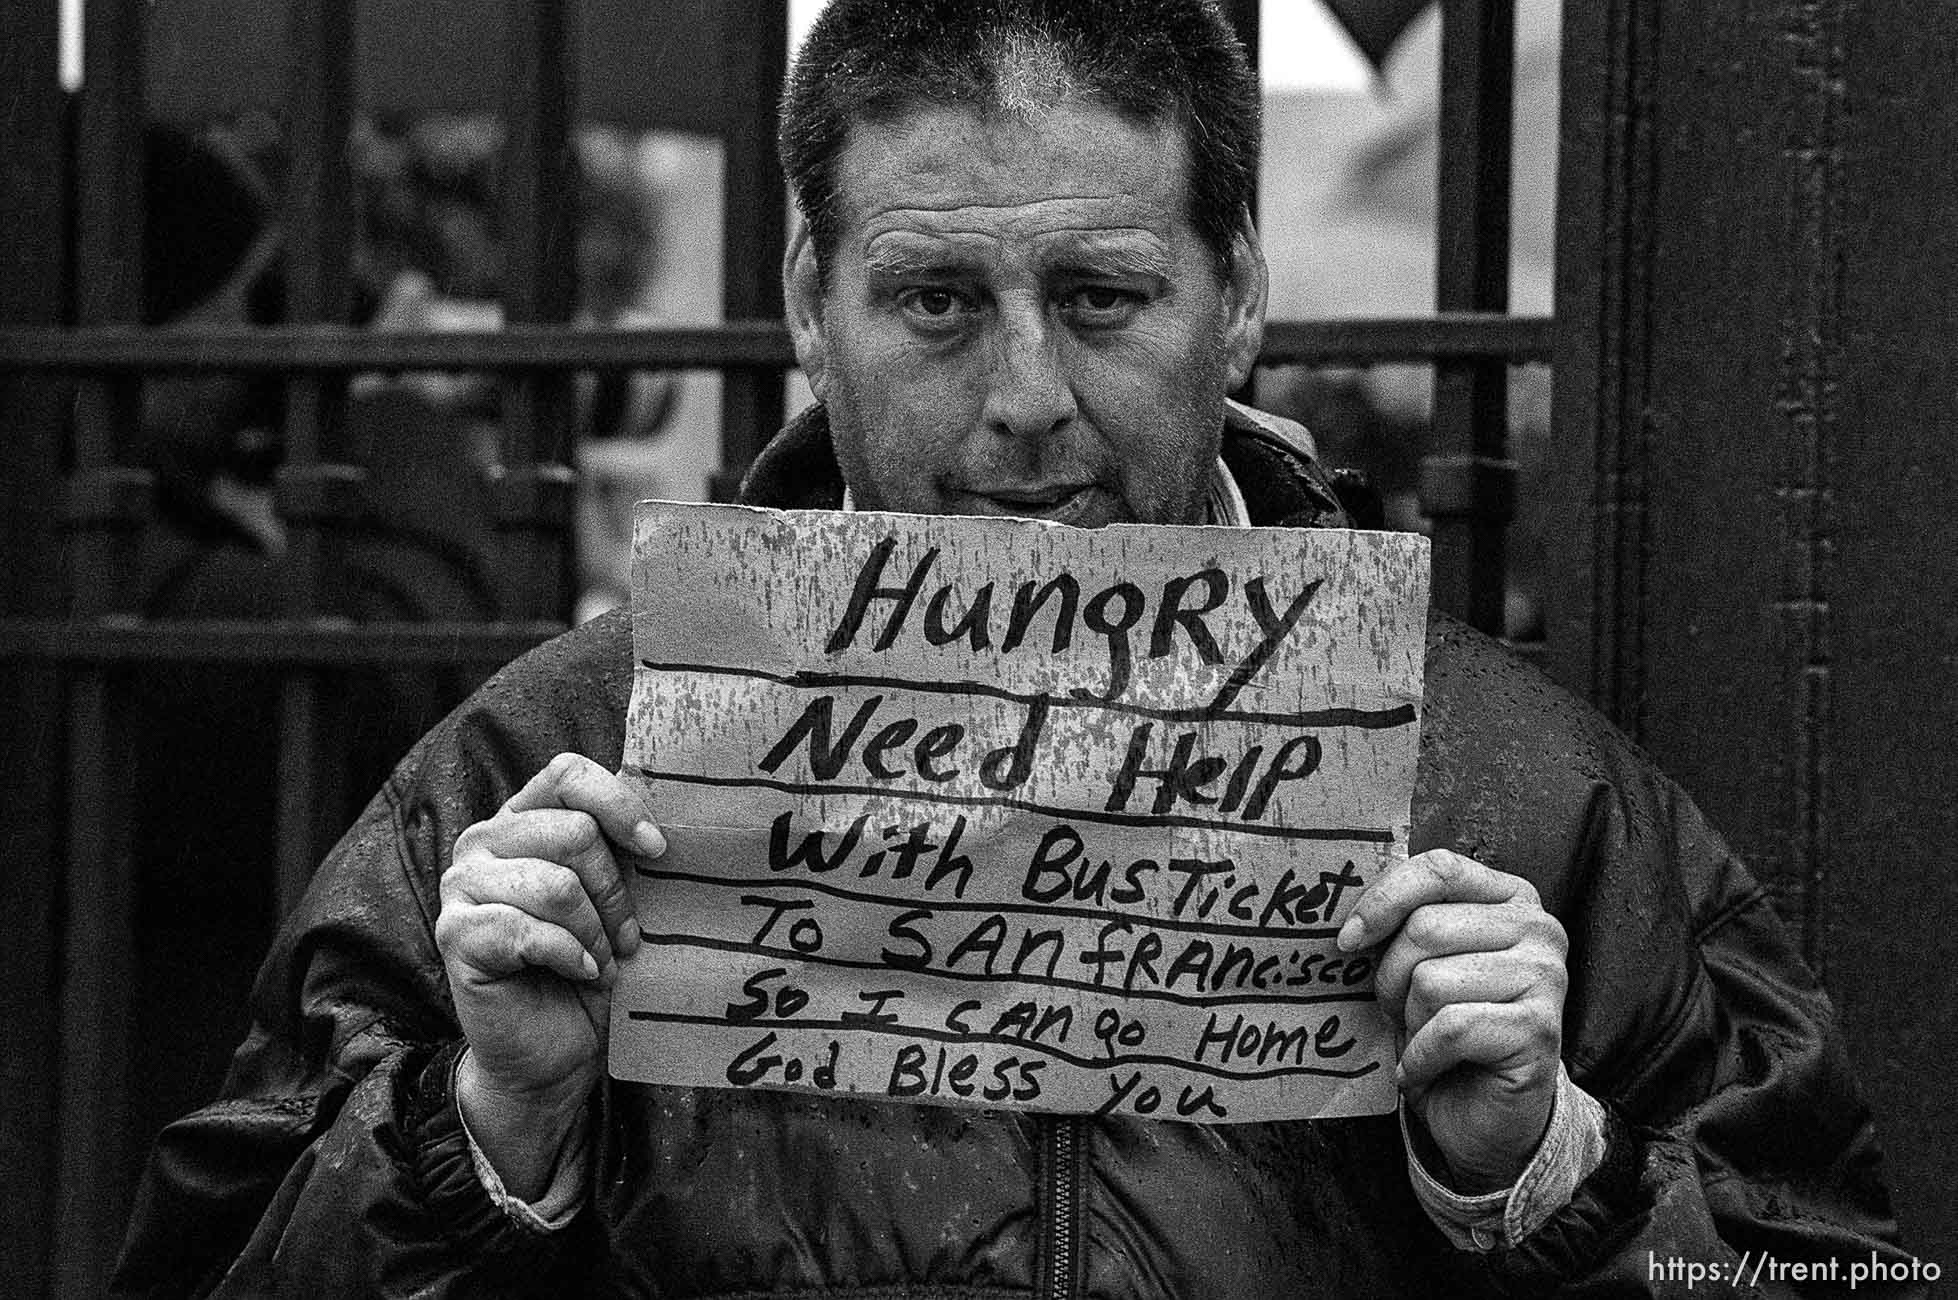 HungRy
Need HelP
With Bus Ticket
To SAn fRAncisco
So I cAn go Home
God Bless You
https://trent.photo